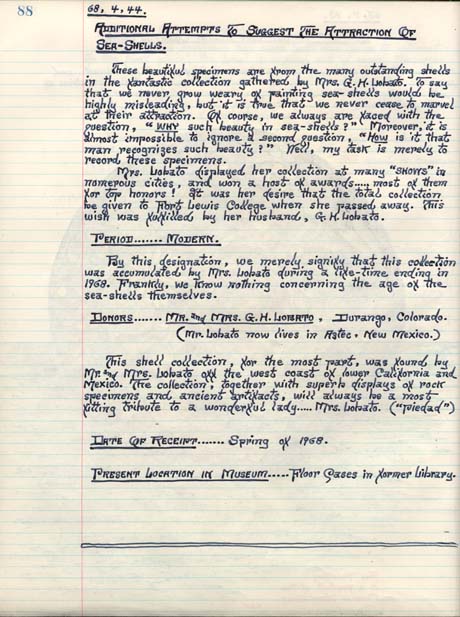 88
68, 4, 44.
Additional Attempts To Suggest The Attraction Of
Sea-Shells.
These beautiful specimens are from the many outstanding shells
in the fantastic collection gathered by Mrs. G. H. Lobato. To say
that we never grow weary of painting sea-shells would be
highly misleading, but it is true that we never cease to marvel
at their attraction. Of course, we always are faced with the
question, "WHY such beauty in sea-shells?" Moreover, it is
almost impossible to ignore a second question, "How is it that
man recognizes such beauty?" Well, my task is merely to
record these specimens.
Mrs. Lobato displayed her collection at many "SHOWS" in
numerous cities, and won a host of awards..... most of them
for top honors! It was her desire that the total collection
be given to Fort Lewis College when she passed away. This
wish was fulfilled by her husband, G. H. Lobato.
Period....... Modern.
By this designation, we merely signify that this collection
was accumulated by Mrs. Lobato during a life-time ending in
1968. Frankly, we know nothing concerning the age of the
sea-shells themselves.
Donors....... Mr. and Mrs. G. H. Lobato, Durango, Colorado.
(Mr. Lobato now lives in Aztec, New Mexico.)
This shell collection, for the most part, was found by
Mr. and Mrs. Lobato off the west coast of lower California and
Mexico. The collection, together with superb displays of rock
specimens and ancient artifacts, will always be a most
fitting tribute to a wonderful lady..... Mrs. Lobato. ("Piedad")
Date Of Receipt....... Spring of 1968.
Present Location in Museum..... Floor Cases in former Library.